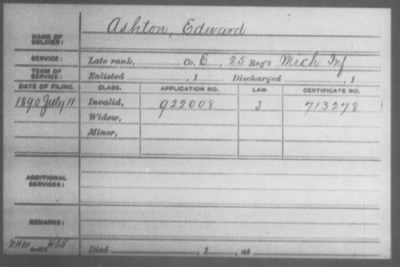 NAME OF SOLDIER: Ashton, Edward
SERVICE: Late rank, Co. E, 25 Reg't Mich Inf
TERM OF SERVICE: Enlisted , 1 Discharged , 1
DATE OF FILING. CLASS. APPLICATION NO. LAW. CERTIFICATE NO.
1890 July 11 Invalid, 922008 J 713278
Widow,
Minor,
ADDITIONAL SERVICES:
REMARKS:
Died , 1 , at